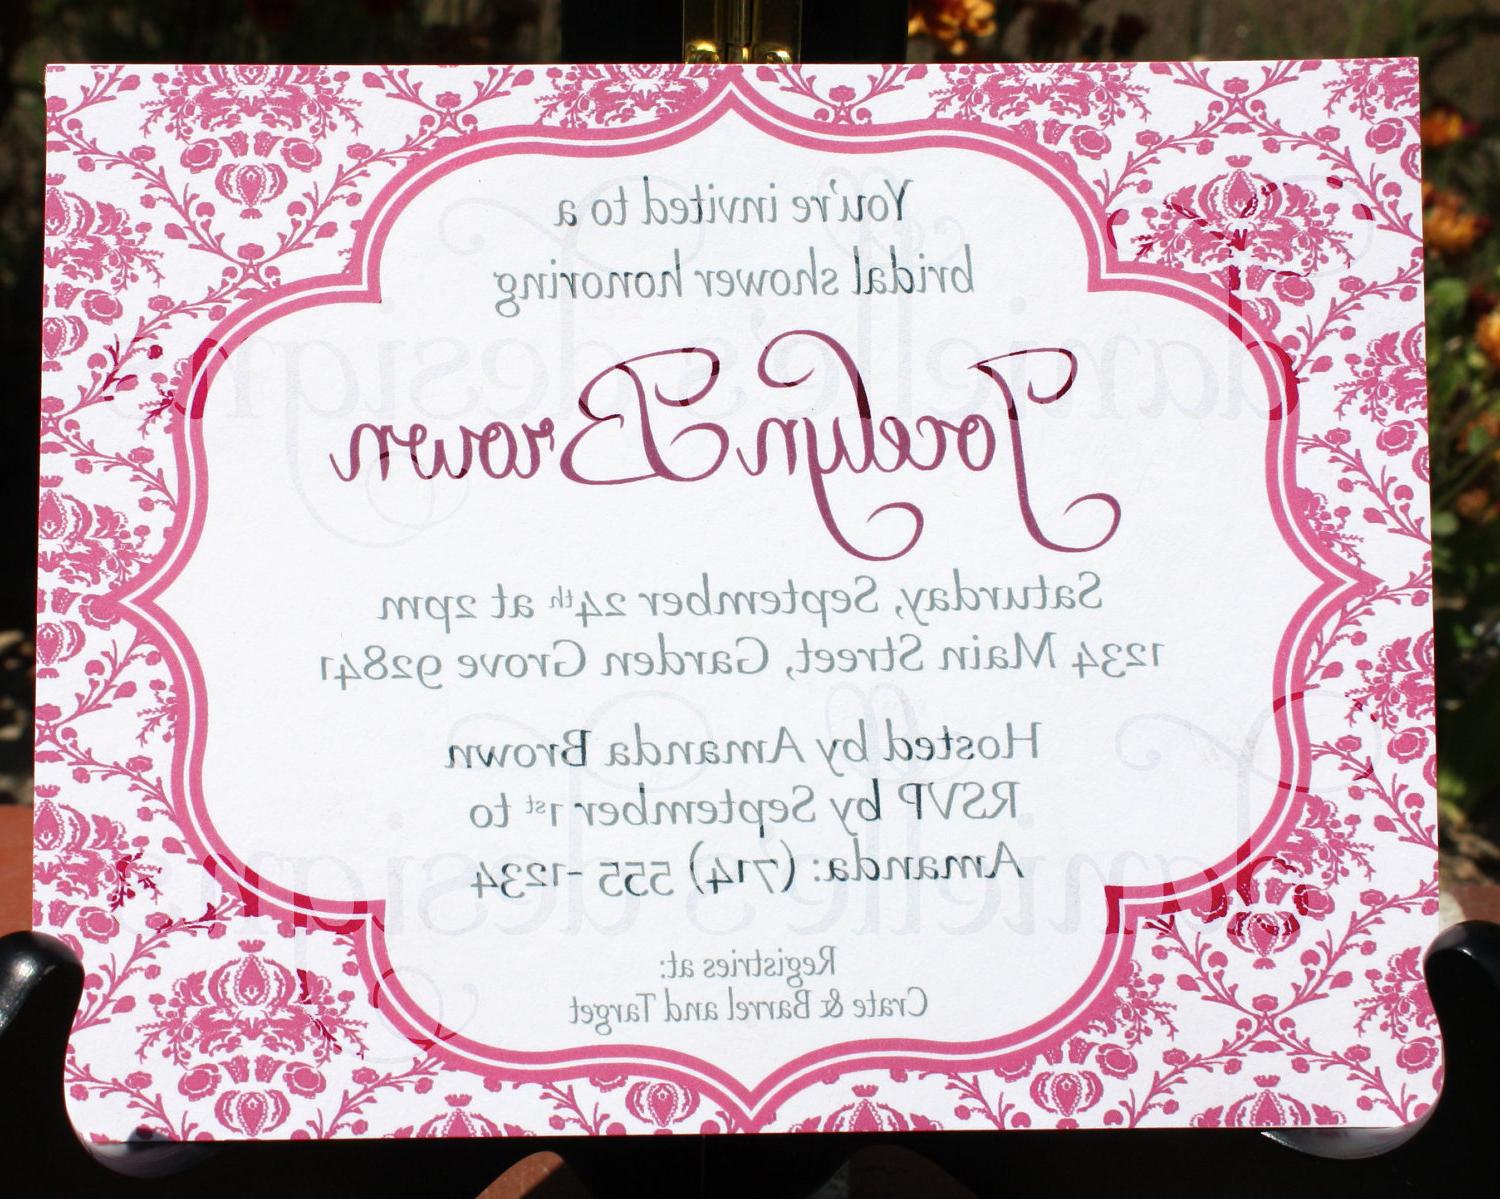 You're invited to a
bridal shower honoring
Jocelyn Brown
Saturday, September 24th at 2pm
1234 Main Street, Garden Grove 92841
Hosted by Amanda Brown
RSVP by September 1st to
Amanda: (714) 555-1234
Registries at:
Crate & Barrel and Target
danielle's designs
danielle's designs